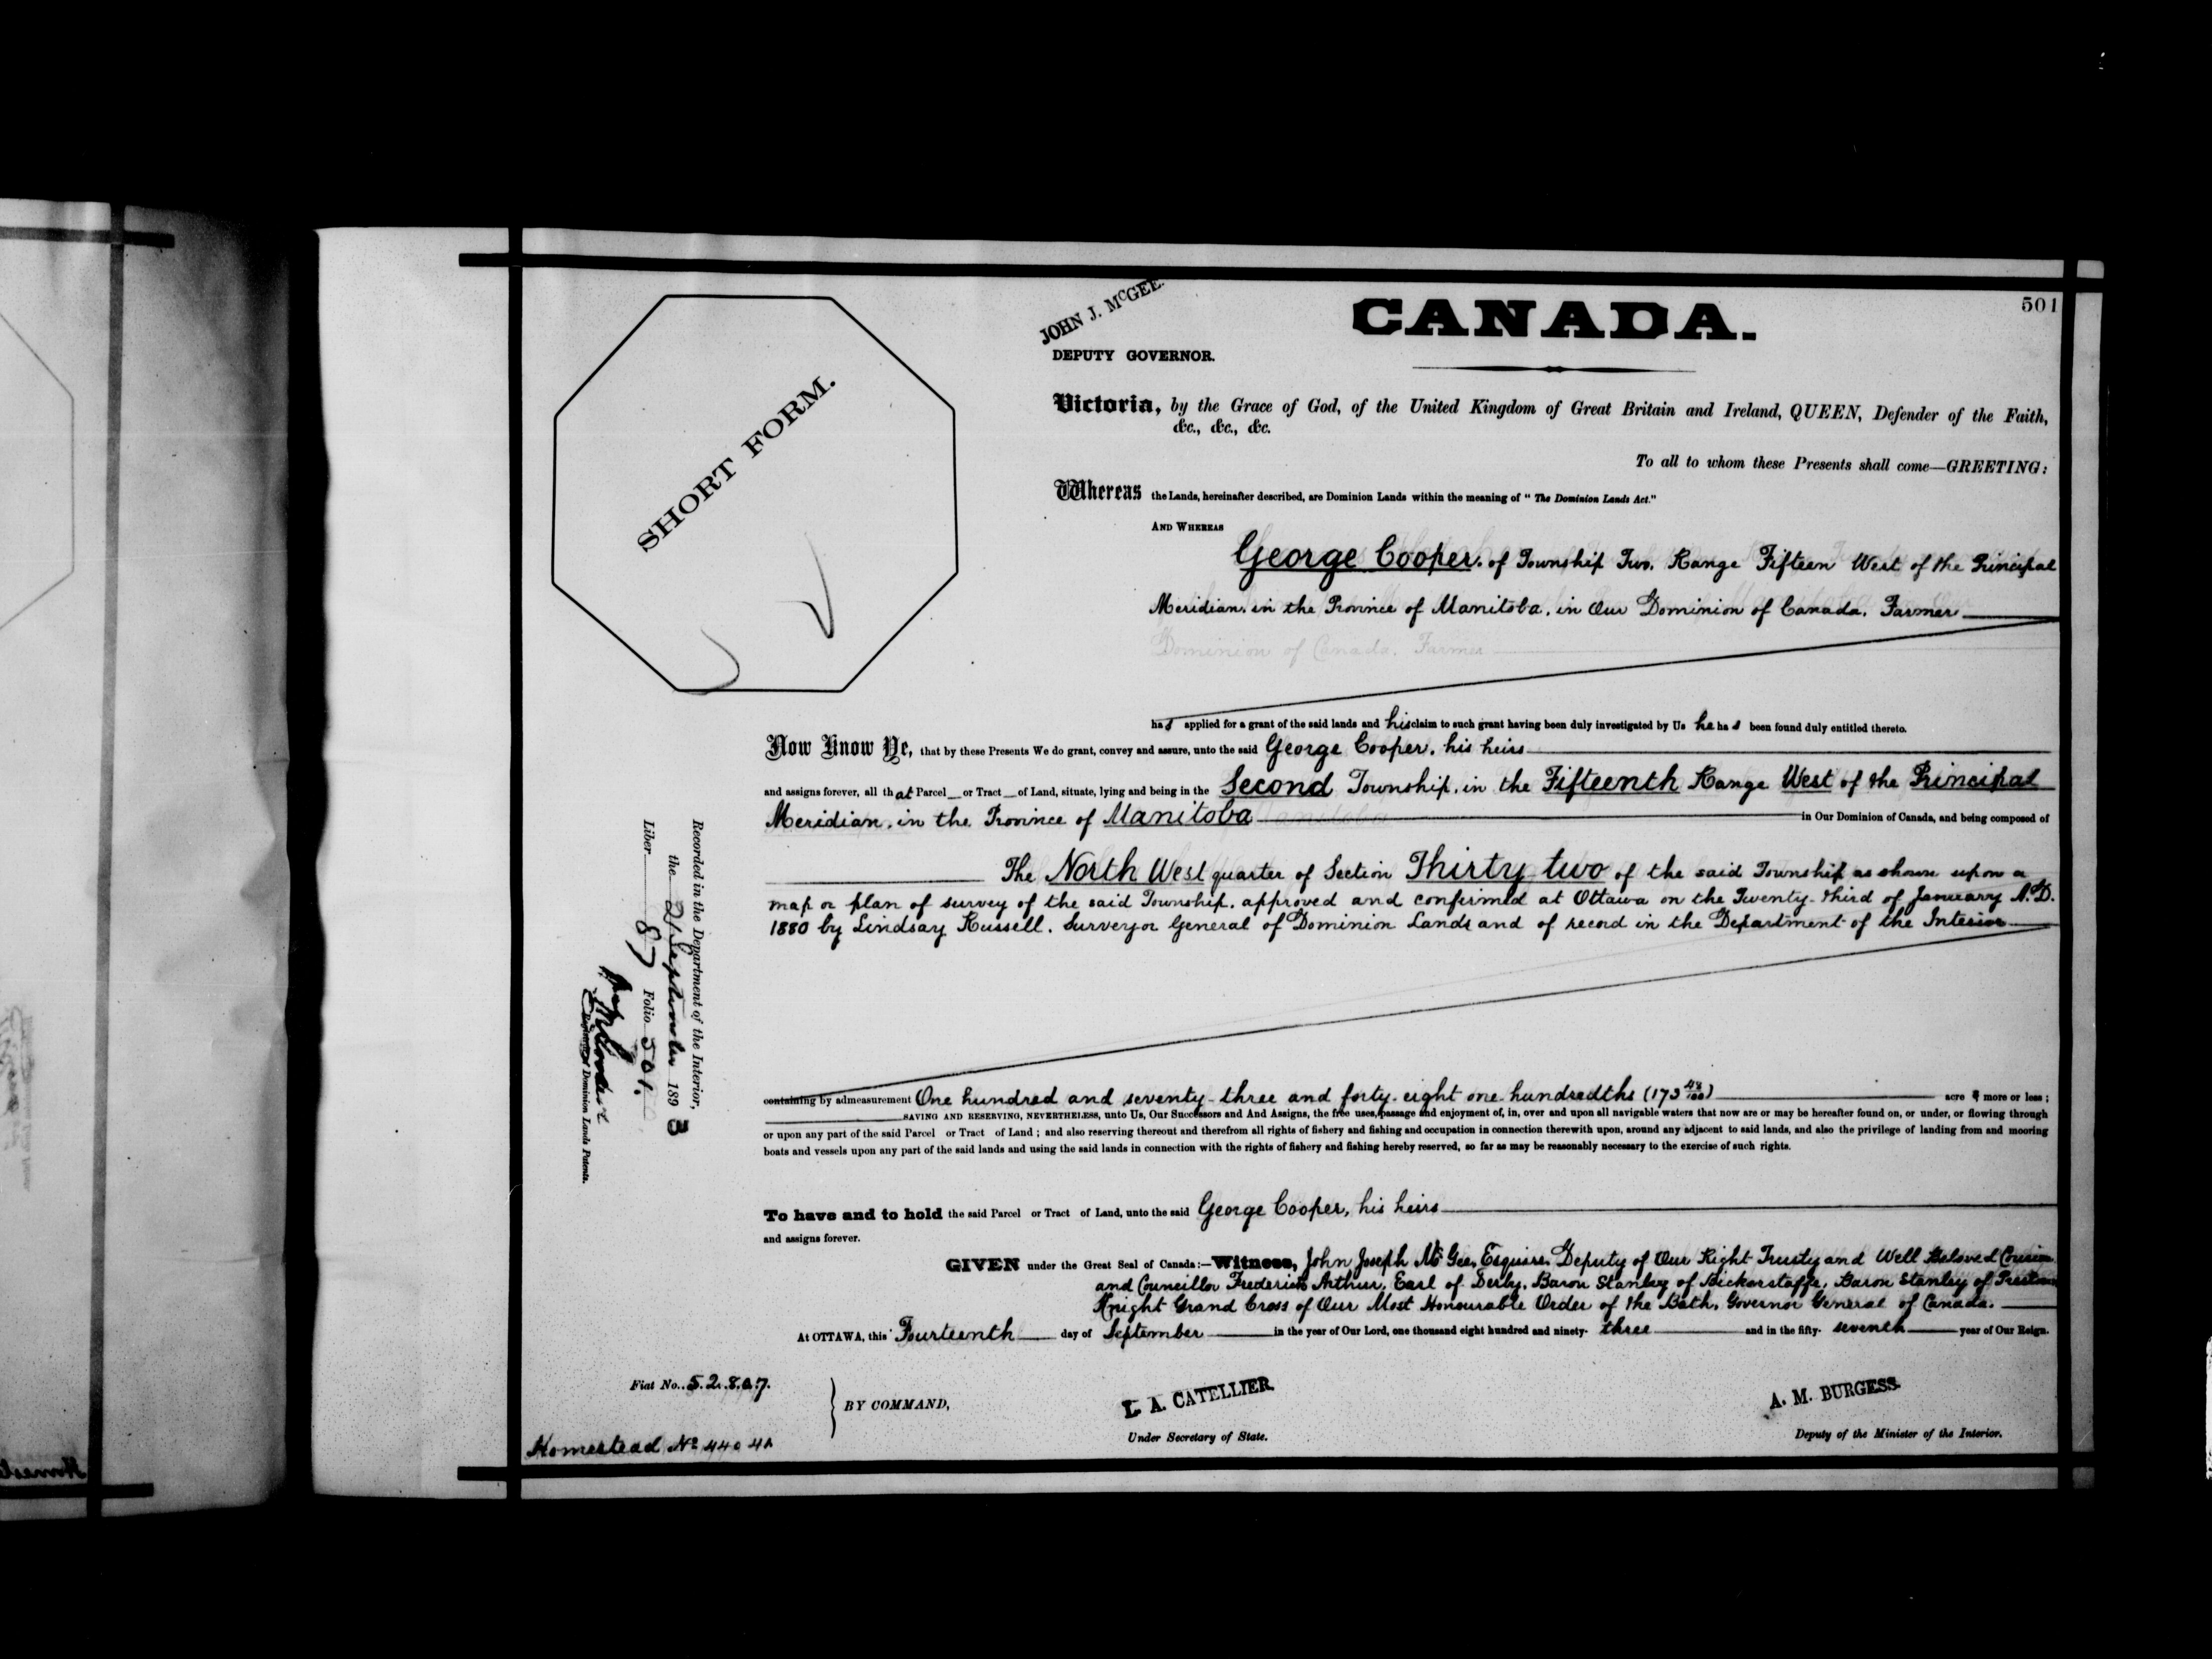 501
JOHN J. McGEE.
DEPUTY GOVERNOR.
CANADA.
SHORT FORM.
Victoria, by the Grace of God, of the United Kingdom of Great Britain and Ireland, QUEEN, Defender of the Faith,
&c., &c., &c.
To all to whom these Presents shall come—GREETING:
Whereas the Lands, hereinafter described, are Dominion Lands within the meaning of "The Dominion Lands Act."
AND WHEREAS
George Cooper. of Township Two, Range Fifteen West of the Principal
Meridian, in the Province of Manitoba, in Our Dominion of Canada, Farmer
Dominion of Canada. Farmer
has applied for a grant of the said lands and his claim to such grant having been duly investigated by Us he has been found duly entitled thereto.
Now Know Ye, that by these Presents We do grant, convey and assure, unto the said George Cooper, his heirs
and assigns forever, all that Parcel or Tract of Land, situate, lying and being in the Second Township, in the Fifteenth Range West of the Principal
Meridian, in the Province of Manitoba in Our Dominion of Canada, and being composed of
The North West quarter of Section Thirty two of the said Township as shown upon a
map or plan of survey of the said Township, approved and confirmed at Ottawa on the Twenty-third of January A.D.
1880 by Lindsay Russell, Surveyor General of Dominion Lands and of record in the Department of the Interior
containing by admeasurement One hundred and seventy-three and forty-eight one hundredths (173 48/100) acre s more or less;
SAVING AND RESERVING, NEVERTHELESS, unto Us, Our Successors and And Assigns, the free uses, passage and enjoyment of, in, over and upon all navigable waters that now are or may be hereafter found on, or under, or flowing through
or upon any part of the said Parcel or Tract of Land; and also reserving thereout and therefrom all rights of fishery and fishing and occupation in connection therewith upon, around any adjacent to said lands, and also the privilege of landing from and mooring
boats and vessels upon any part of the said lands and using the said lands in connection with the rights of fishery and fishing hereby reserved, so far as may be reasonably necessary to the exercise of such rights.
To have and to hold the said Parcel or Tract of Land, unto the said George Cooper, his heirs
and assigns forever.
GIVEN under the Great Seal of Canada:—Witness, John Joseph McGee, Esquire, Deputy of Our Right Trusty and Well Beloved Cousin
and Councillor Frederick Arthur, Earl of Derby, Baron Stanley of Bickerstaffe, Baron Stanley of Preston
Knight Grand Cross of Our Most Honourable Order of the Bath, Governor General of Canada.
At OTTAWA, this Fourteenth day of September in the year of Our Lord, one thousand eight hundred and ninety-three and in the fifty-seventh year of Our Reign.
Fiat No. 52807.
BY COMMAND,
L. A. CATELLIER.
Under Secretary of State.
A. M. BURGESS.
Deputy of the Minister of the Interior.
Homestead No
Recorded in the Department of the Interior,
the 21 September 1893
Liber 87 Folio 501.
of Dominion Lands Patents.